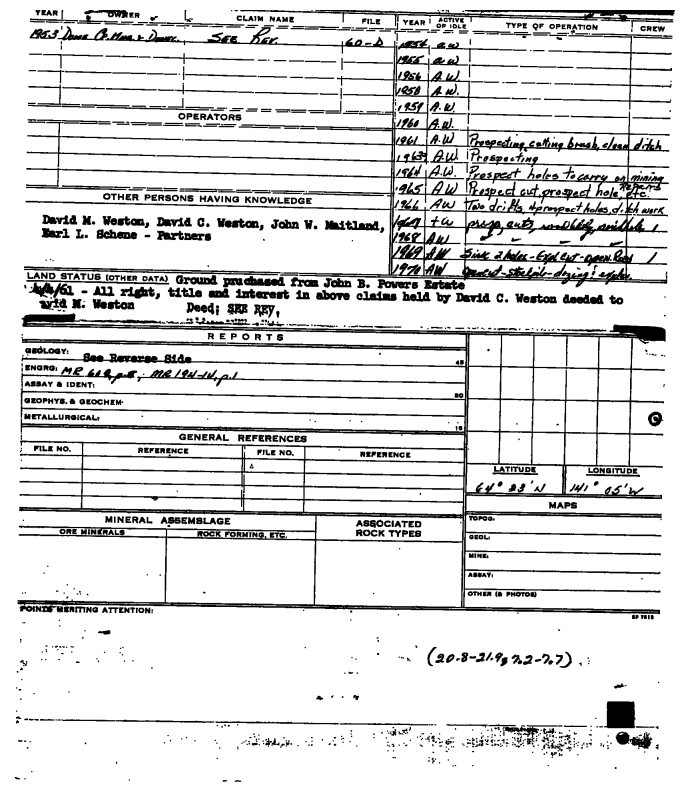 YEAR OWNER CLAIM NAME FILE YEAR ACTIVE OR IDLE TYPE OF OPERATION CREW
1953 SEE REV. 60-D 1954 a.w
1955 a.w
1956 A.W.
1958 A.W.
1959 A.W.
OPERATORS
1960 A.W.
1961 A.W Prospecting, cutting brush, clean ditch
1963 A.W. Prospecting
1964 A.W. Prospect holes to carry on mining
1965 AW Prospect cut, prospect hole, Repairs etc.
OTHER PERSONS HAVING KNOWLEDGE
1966 AW Two drifts, 4 prospect holes, ditch work
David M. Weston, David C. Weston, John W. Maitland,
Earl L. Schene - Partners
1967 1
1968 AW
1969 AW Sink 2 holes - Expl cut - open Road 1
1970 AW
LAND STATUS (OTHER DATA) Ground pruchased from John B. Powers Estate
/61 - All right, title and interest in above claims held by David C. Weston deeded to
David M. Weston Deed; SEE REV,
REPORTS
GEOLOGY: See Reverse Side 45
ENGRG: MR 60 MR 194-14, p.1
ASSAY & IDENT:
GEOPHYS. & GEOCHEM. 30
METALLURGICAL: 15
GENERAL REFERENCES
FILE NO. REFERENCE FILE NO. REFERENCE
LATITUDE LONGITUDE
64° 23'N 141° 05'W
MAPS
MINERAL ASSEMBLAGE ASSOCIATED ROCK TYPES
ORE MINERALS ROCK FORMING, ETC.
TOPOG:
GEOL:
MINE:
ASSAY:
OTHER (& PHOTOS)
POINTS MERITING ATTENTION:
(20.8-21.9, 7.2-7.7)